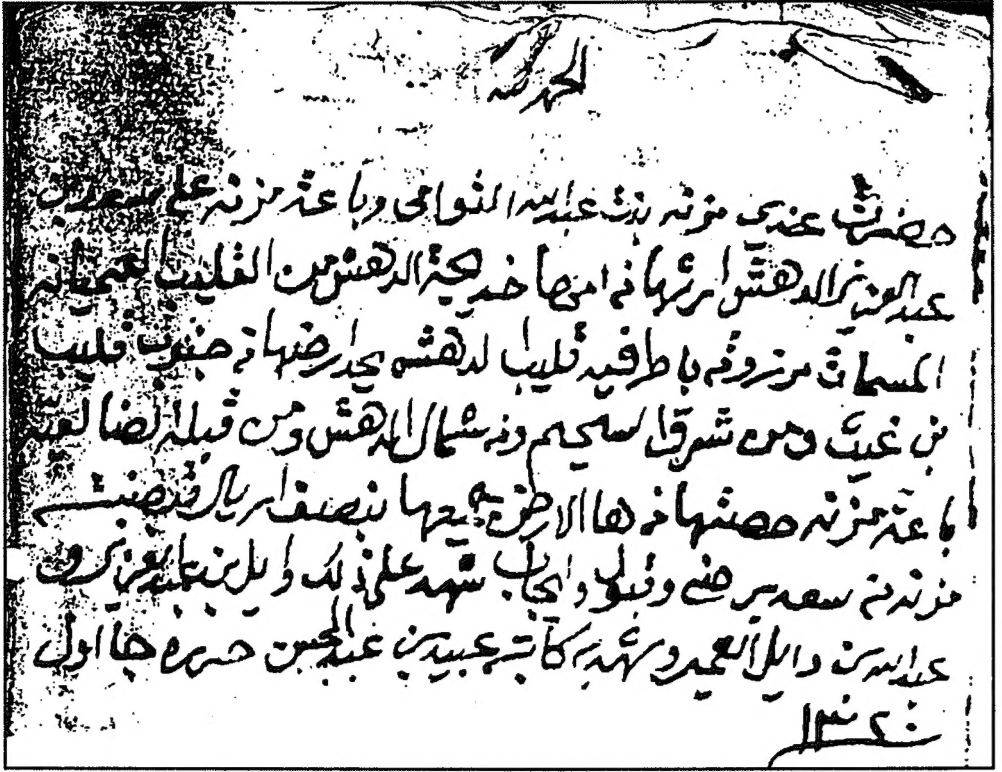 الحمد لله
حضرت عندي مزنه بنت عبدالله الثوامي وباعة مزنه على سعد بن
عبدالعزيز الدهش ارثها من امها خديجة الدهش من القليب
المسمات مرزوقه باطرافيه قليب الدهش يحدارضها من جنوب قليب
بن غيث ومن شرق السحيم ومن شمال الدهش ومن قبلة
باعة مزنه حصتها من ها الارض جميعها بنصف اريال قد
مزنه من سعد برضى وقبول وايجاب شهد على ذلك وايل بن عبدالعزيز و
عبدالله بن وايل العمير وشهد به كاتبه عبيد بن عبدالمحسن حرره جا اول
١٣٢٠